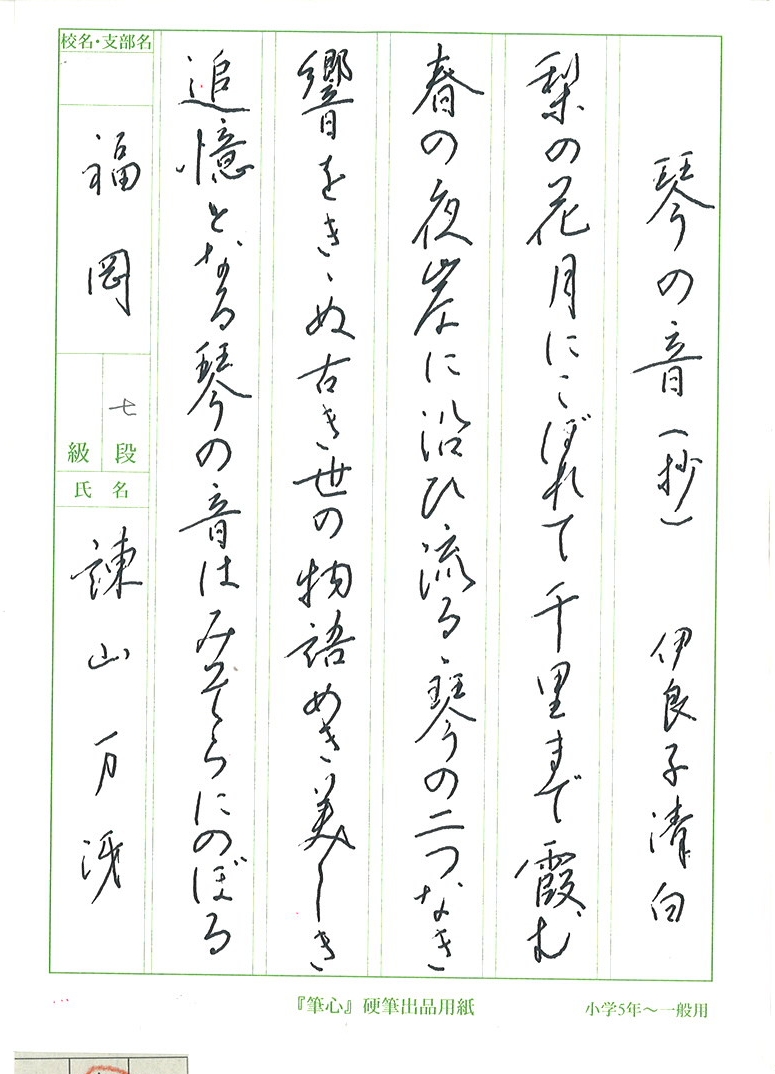 琴の音(抄) 伊良子清白
梨の花月にこぼれて千里まで霞む
春の夜岸に沿ひ流るゝ琴の二つなき
響をきゝぬ古き世の物語めき美しき
追憶となる琴の音はみそらにのぼる
校名・支部名
福岡
七段
級
氏名
諫山万
『筆心』硬筆出品用紙
小学5年〜一般用